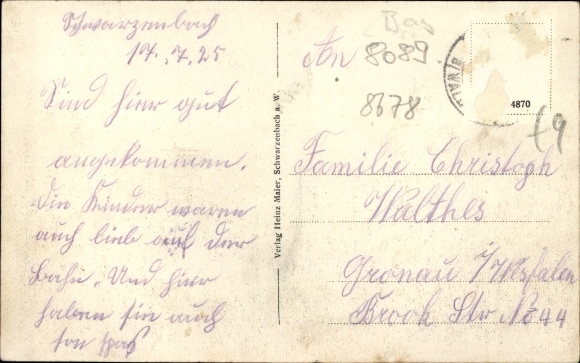 Schwarzenbach
17.7.25
Sind hier gut
angekommen.
Die Kinder waren
auch lieb auf der
Bahn. Und hier
haben sie auch
son spas
Verlag Heinz Maier, Schwarzenbach a. W.
An
8089
8678
4870
Familie Christoph
Walther
Gronau i/Westfalen
Brook Str No 44